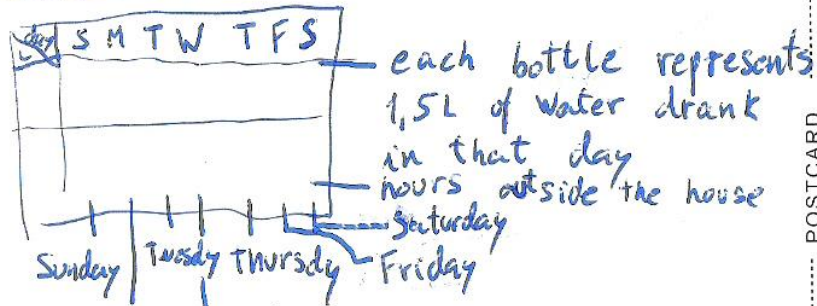 day S M T W T F S
each bottle represents
1,5L of water drank
in that day
hours outside the house
Saturday
Sunday Tuesdy Thursdy Friday
POSTCARD